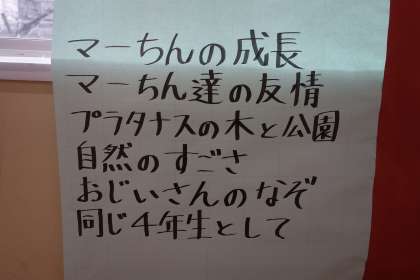 マーちんの成長
マーちん達の友情
プラタナスの木と公園
自然のすごさ
おじいさんのなぞ
同じ4年生として